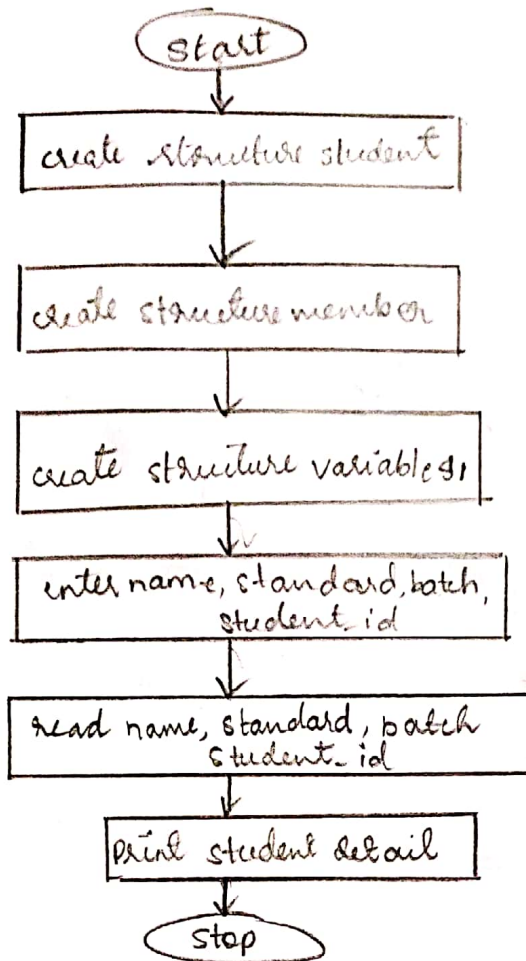 Start
create structure student
create structure member
create structure variable s1
enter name, standard, batch,
student_id
read name, standard, batch
student_id
print student detail
stop